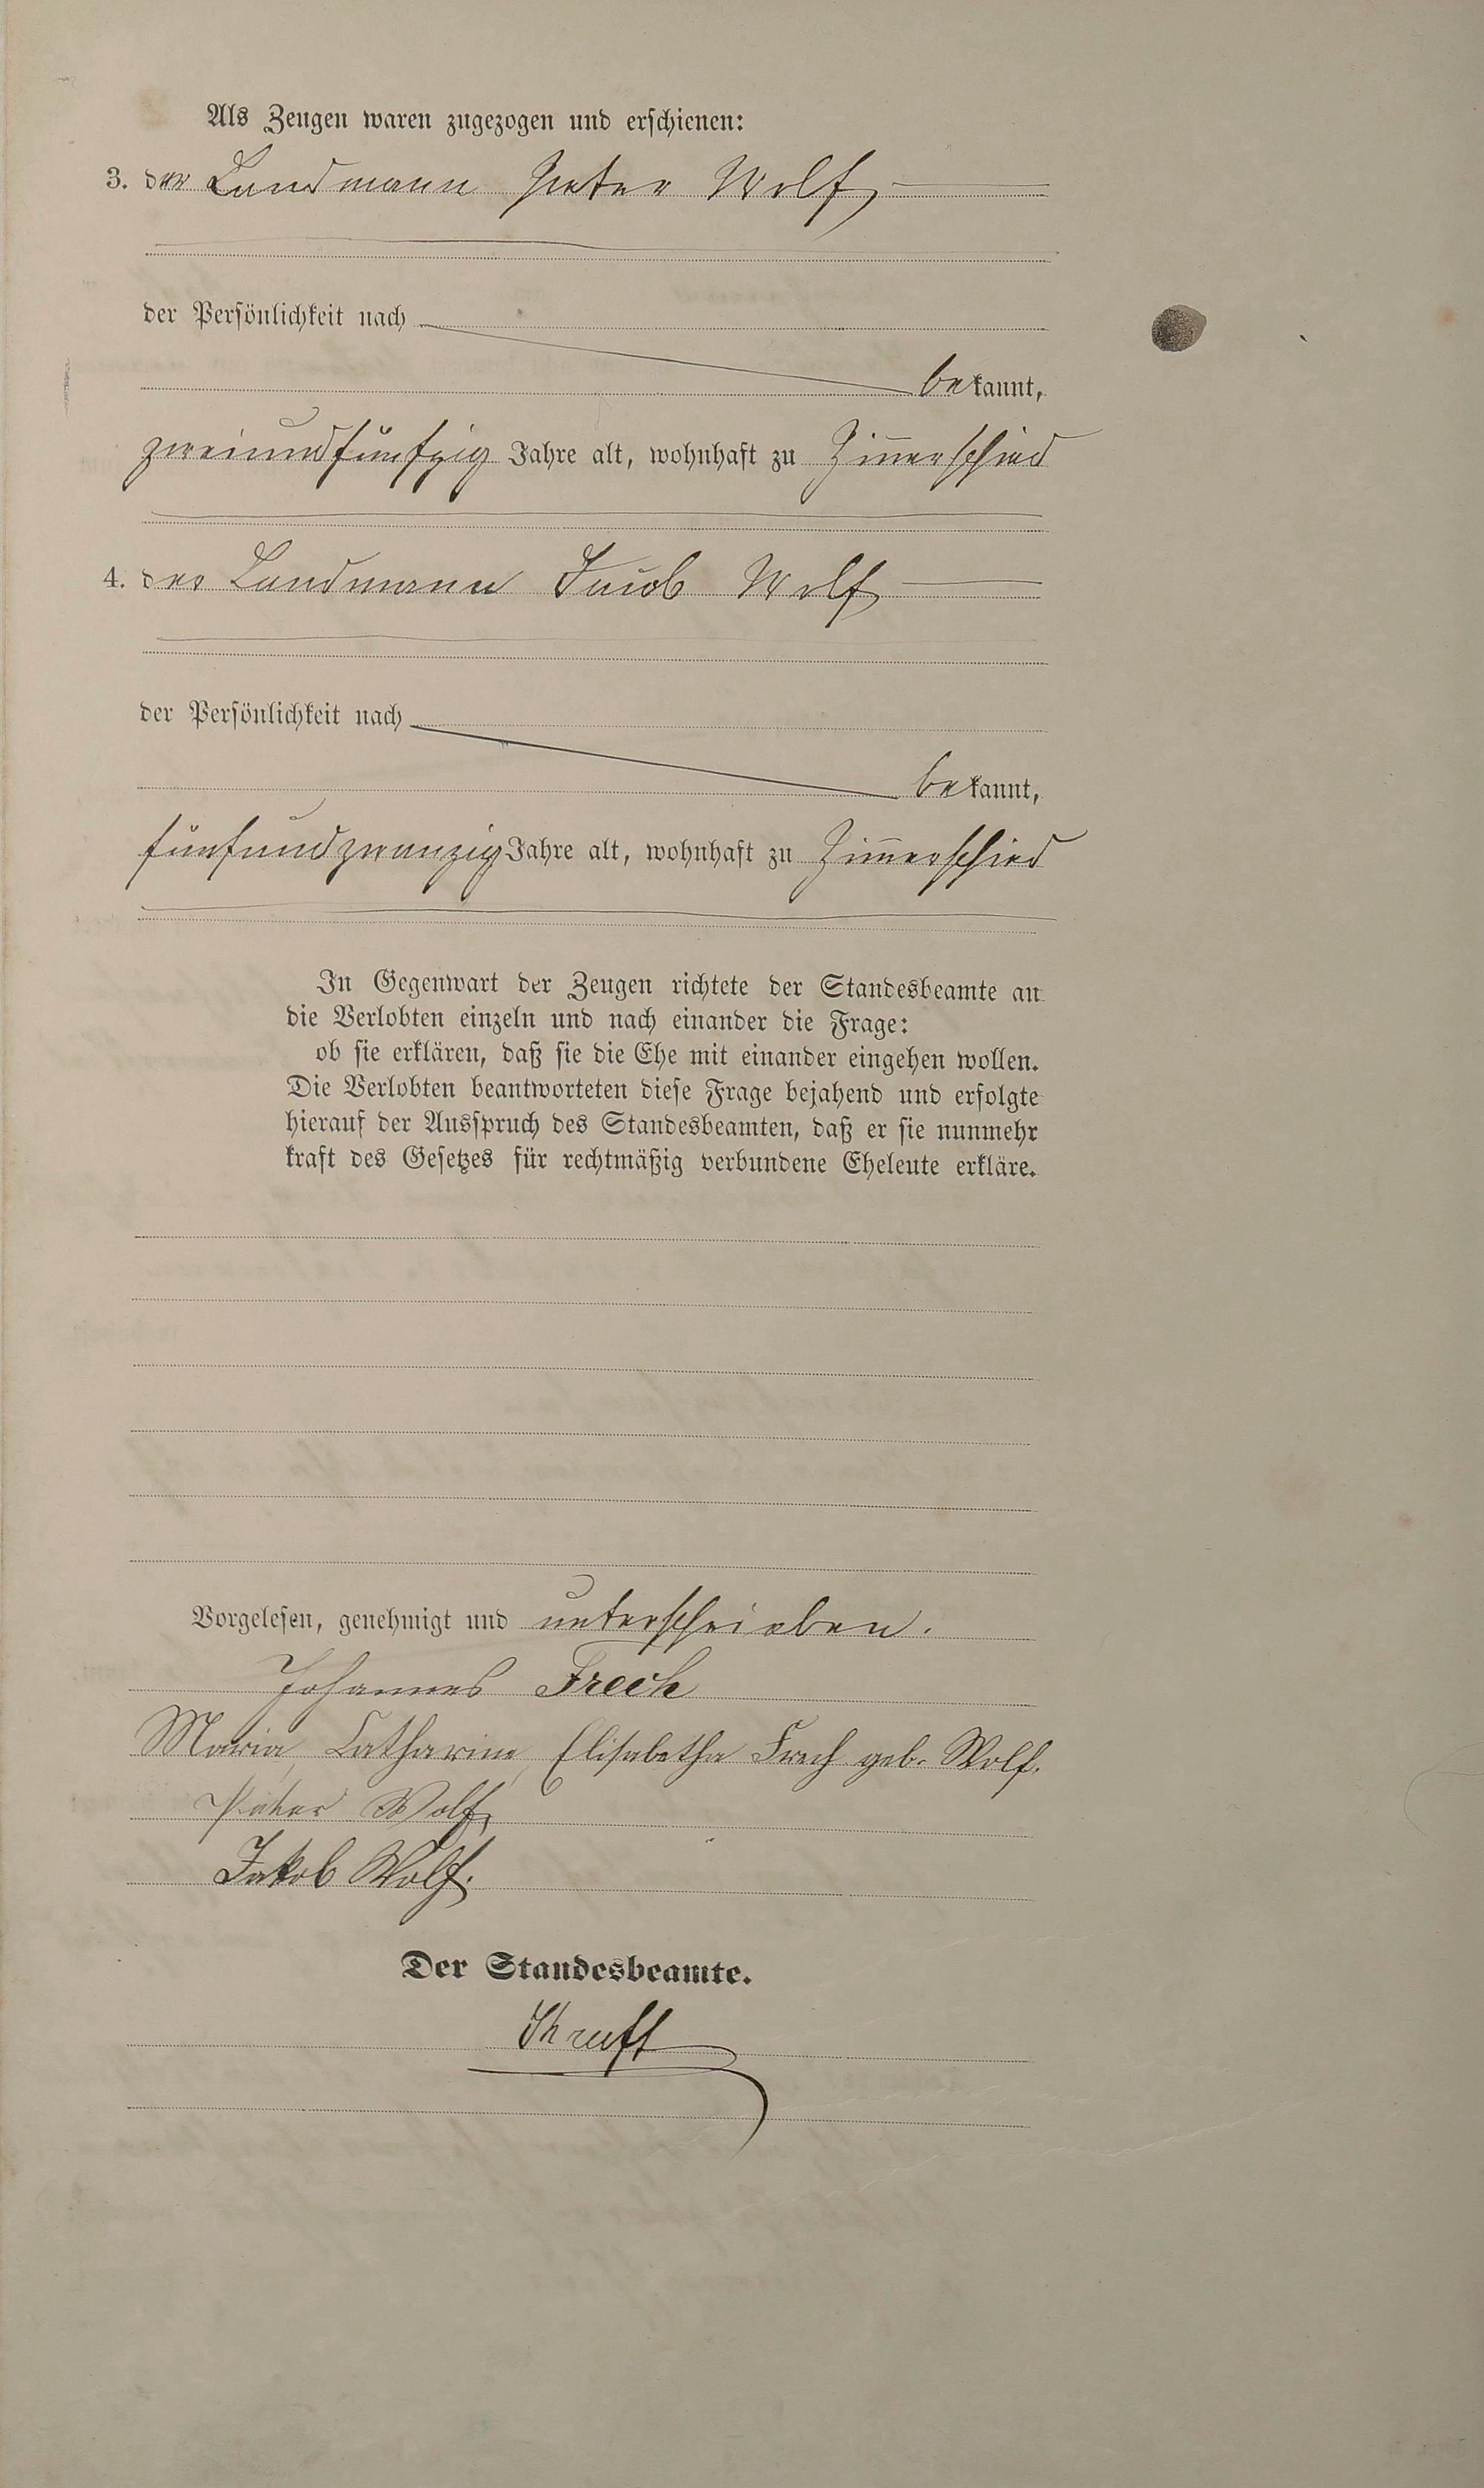 Als Zeugen waren zugezogen und erschienen:
3. der Landmann Peter Wolf,
der Persönlichkeit nach
bekannt,
zweiundfünfzig Jahre alt, wohnhaft zu Zim̄erschied
4. der Landmann Jacob Wolf
der Persönlichkeit nach
bekannt,
fünfundzwanzig Jahre alt, wohnhaft zu Zim̄erschied
In Gegenwart der Zeugen richtete der Standesbeamte an
die Verlobten einzeln und nach einander die Frage:
ob sie erklären, daß sie die Ehe mit einander eingehen wollen.
Die Verlobten beantworteten diese Frage bejahend und erfolgte
hierauf der Ausspruch des Standesbeamten, daß er sie nunmehr
kraft des Gesetzes für rechtmäßig verbundene Eheleute erkläre.
Vorgelesen, genehmigt und unterschrieben.
Johannes Frech
Maria, Catharine, Elisabetha Frech geb. Wolf.
Peter Wolf,
Jakob Wolf.
Der Standesbeamte.